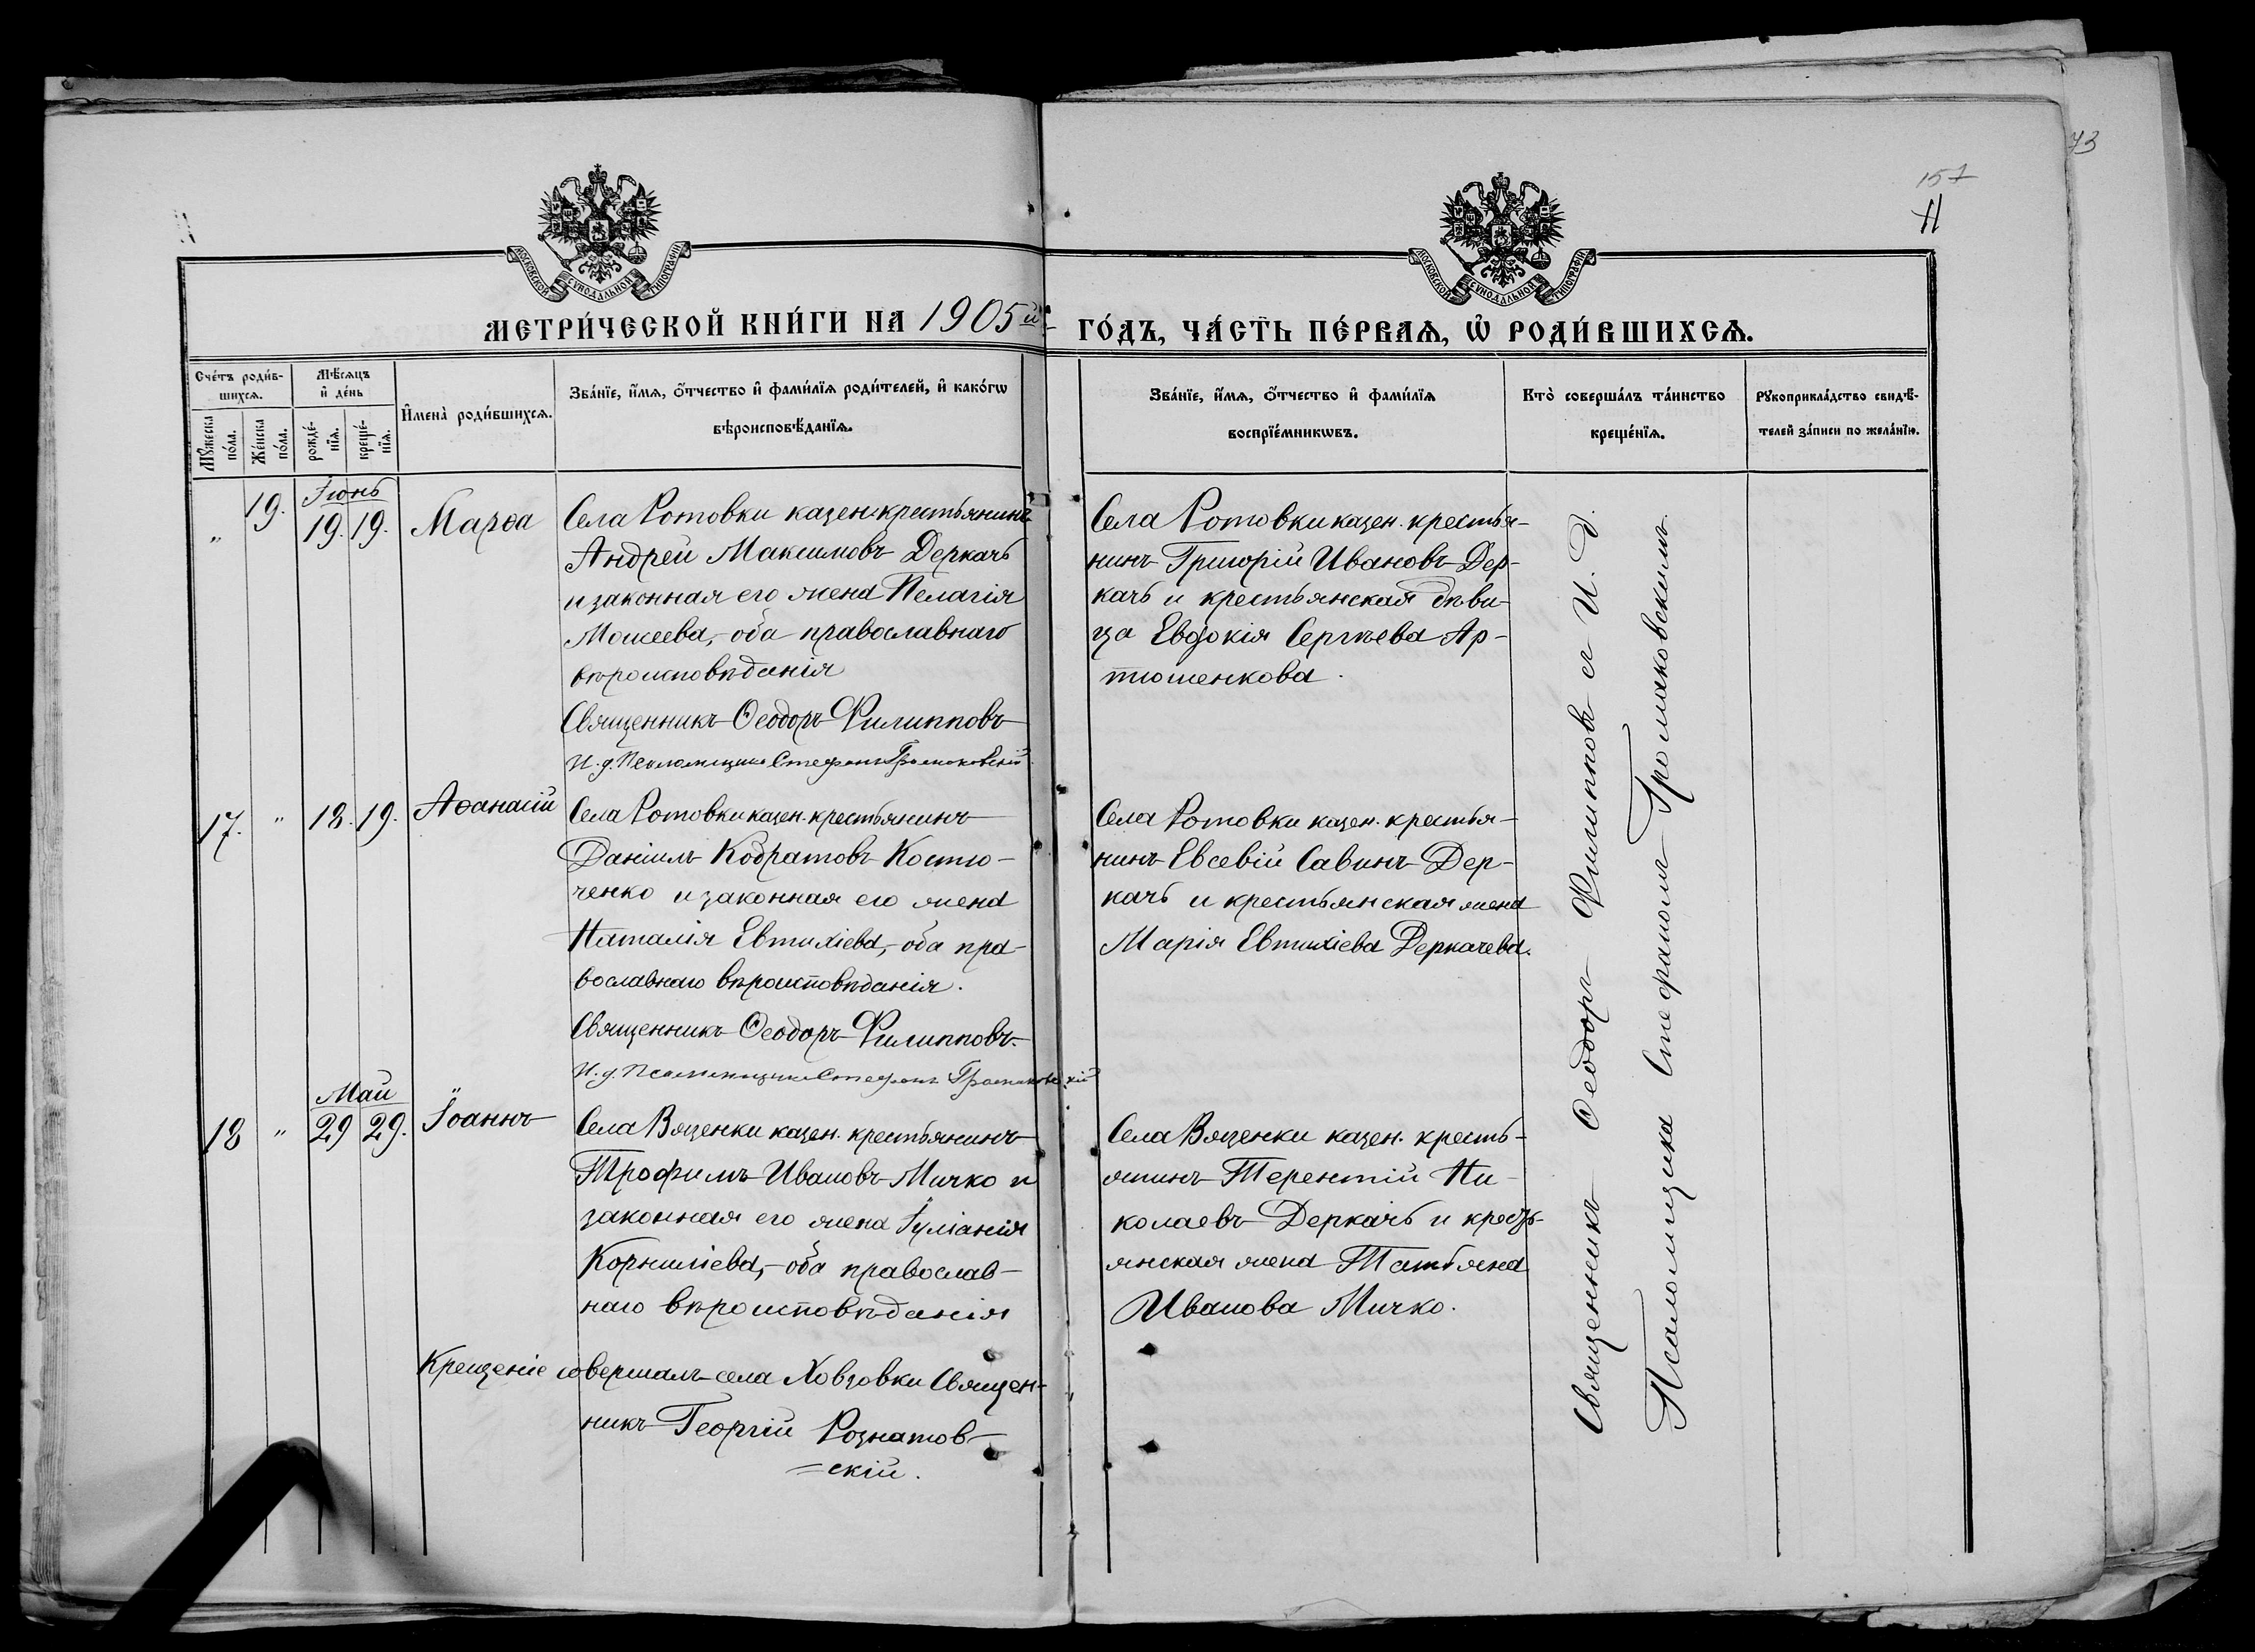 73
157
11
МОСКОВСКОЙ СѴНОДАЛЬНОЙ ТИПОГРАФІИ
МОСКОВСКОЙ СѴНОДАЛЬНОЙ ТИПОГРАФІИ
МЕТРИ́ЧЕСКОЙ КНИ́ГИ НА 1905й ГО́ДЪ, ЧА́СТЬ ПЕ́РВАѦ, Ѡ҆ РОДИ́ВШИХСѦ.
Сче́тъ роди́в-
шихсѧ.
Мꙋ́жеска по́ла.
Же́нска по́ла.
Мѣ́сѧцъ и҆ де́нь
рожде́-нїѧ.
креще́-нїѧ.
И҆мена̀ роди́вшихсѧ.
Зва́нїе, и҆́мѧ, ѻ҆́тчество и҆ фами́лїѧ роди́телей, и҆ како́гѡ
вѣроисповѣ́данїѧ.
Зва́нїе, и҆́мѧ, ѻ҆́тчество и҆ фами́лїѧ
воспрїе́мникѡвъ.
Кто̀ соверша́лъ та́инство
креще́нїѧ.
Рꙋкоприкла́дство свидѣ́-
телей за́писи по жела́нїю.
" 19. Іюнь 19. 19. Марѳа
Села Ротовки казен. крестьянинъ
Андрей Максимовъ Деркачъ
и законная его жена Пелагія
Моисеева, – оба православнаго
вѣроисповѣданія
Священникъ Ѳеодоръ Филипповъ
И. д. Псаломщика Стефанъ Громаковскій
Села Ротовки казен. крестья-
нинъ Григорій Ивановъ Дер-
качъ и крестьянская дѣви-
ца Евдокія Сергѣева Ар-
тюшенкова.
17. " 18. 19. Аѳанасій
Села Ротовки казен. крестьянинъ
Даніилъ Кодратовъ Костю-
ченко и законная его жена
Наталія Евтихіева, – оба пра-
вославнаго вѣроисповѣданія.
Священникъ Ѳеодоръ Филипповъ.
И. д. Псаломщика Стефанъ Громаковскій
Села Ротовки казен. крестья-
нинъ Евсевій Савинъ Дер-
качъ и крестьянская жена
Марія Евтихіева Деркачева.
18 " Май 29 29. Іоаннъ
Села Вязенки казен. крестьянинъ
Трофимъ Ивановъ Мичко и
законная его жена Іуліанія
Корниліева, – оба православ-
наго вѣроисповѣданія
Крещеніе совершалъ села Ховзовки Священ-
никъ Георгій Рознатов-
=скій.
Села Вязенки казен. кресть-
янинъ Терентій Ни-
колаевъ Деркачъ и кресть-
янская жена Татьяна
Иванова Мичко.
Священникъ Ѳеодоръ Филипповъ съ И. д.
Псаломщика Стефаномъ Громаковскимъ.